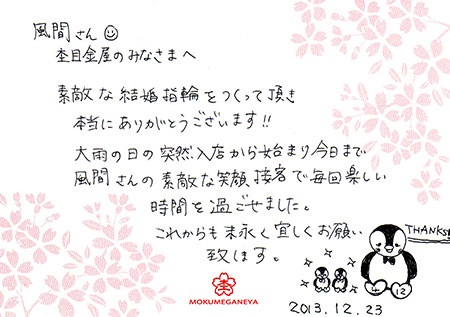 風間さん
杢目金屋のみなさまへ
素敵な結婚指輪をつくって頂き
本当にありがとうございます!!
大雨の日の突然入店から始まり今日まで
風間さんの素敵な笑顔、接客で毎回楽しい
時間を過ごせました。
これからも末永く宜しくお願い
致します。
THANKS!
4 12
MOKUMEGANEYA
2013.12.23